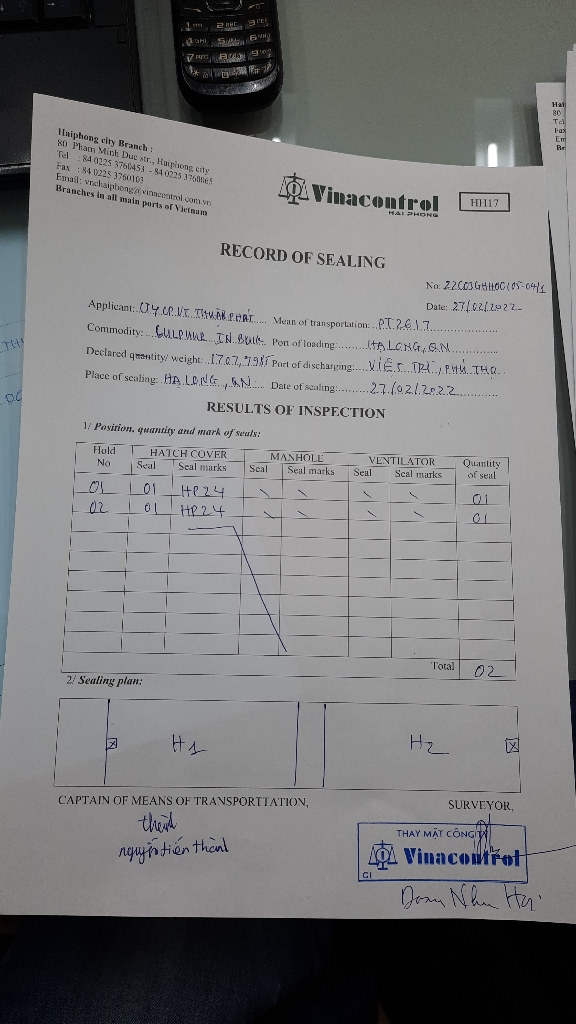 Haiphong city Branch :
80 Pham Minh Duc str., Haiphong city
Tel : 84 0225 3760453 - 84 0225 3760065
Fax : 84 0225 3760103
Email: vnchaiphong@vinacontrol.com.vn
Branches in all main ports of Vietnam
Vinacontrol
HAI PHONG
HH17
RECORD OF SEALING
No: 22C03GHH00105-04/1
Date: 27/02/2022
Applicant: CTY CP VT THUẬN PHÁT Mean of transportation: PT2617
Commodity: SULPHUR IN BULK Port of loading: HALONG, QN
Declared quantity/ weight: 1707,798T Port of discharging: VIỆT TRÌ, PHÚ THỌ
Place of sealing: HALONG, QN Date of sealing: 27/02/2022
RESULTS OF INSPECTION
1/ Position, quantity and mark of seals:
Hold No HATCH COVER MANHOLE VENTILATOR Quantity of seal
Seal Seal marks Seal Seal marks Seal Seal marks
01 01 HP24 \ \ \ \ 01
02 01 HP24 \ \ \ \ 01
Total 02
2/ Sealing plan:
H1 H2
CAPTAIN OF MEANS OF TRANSPORTTATION, SURVEYOR,
thành
nguyễn tiến thành
THAY MẶT CÔNG TY
Vinacontrol
GI
Doan Nhu